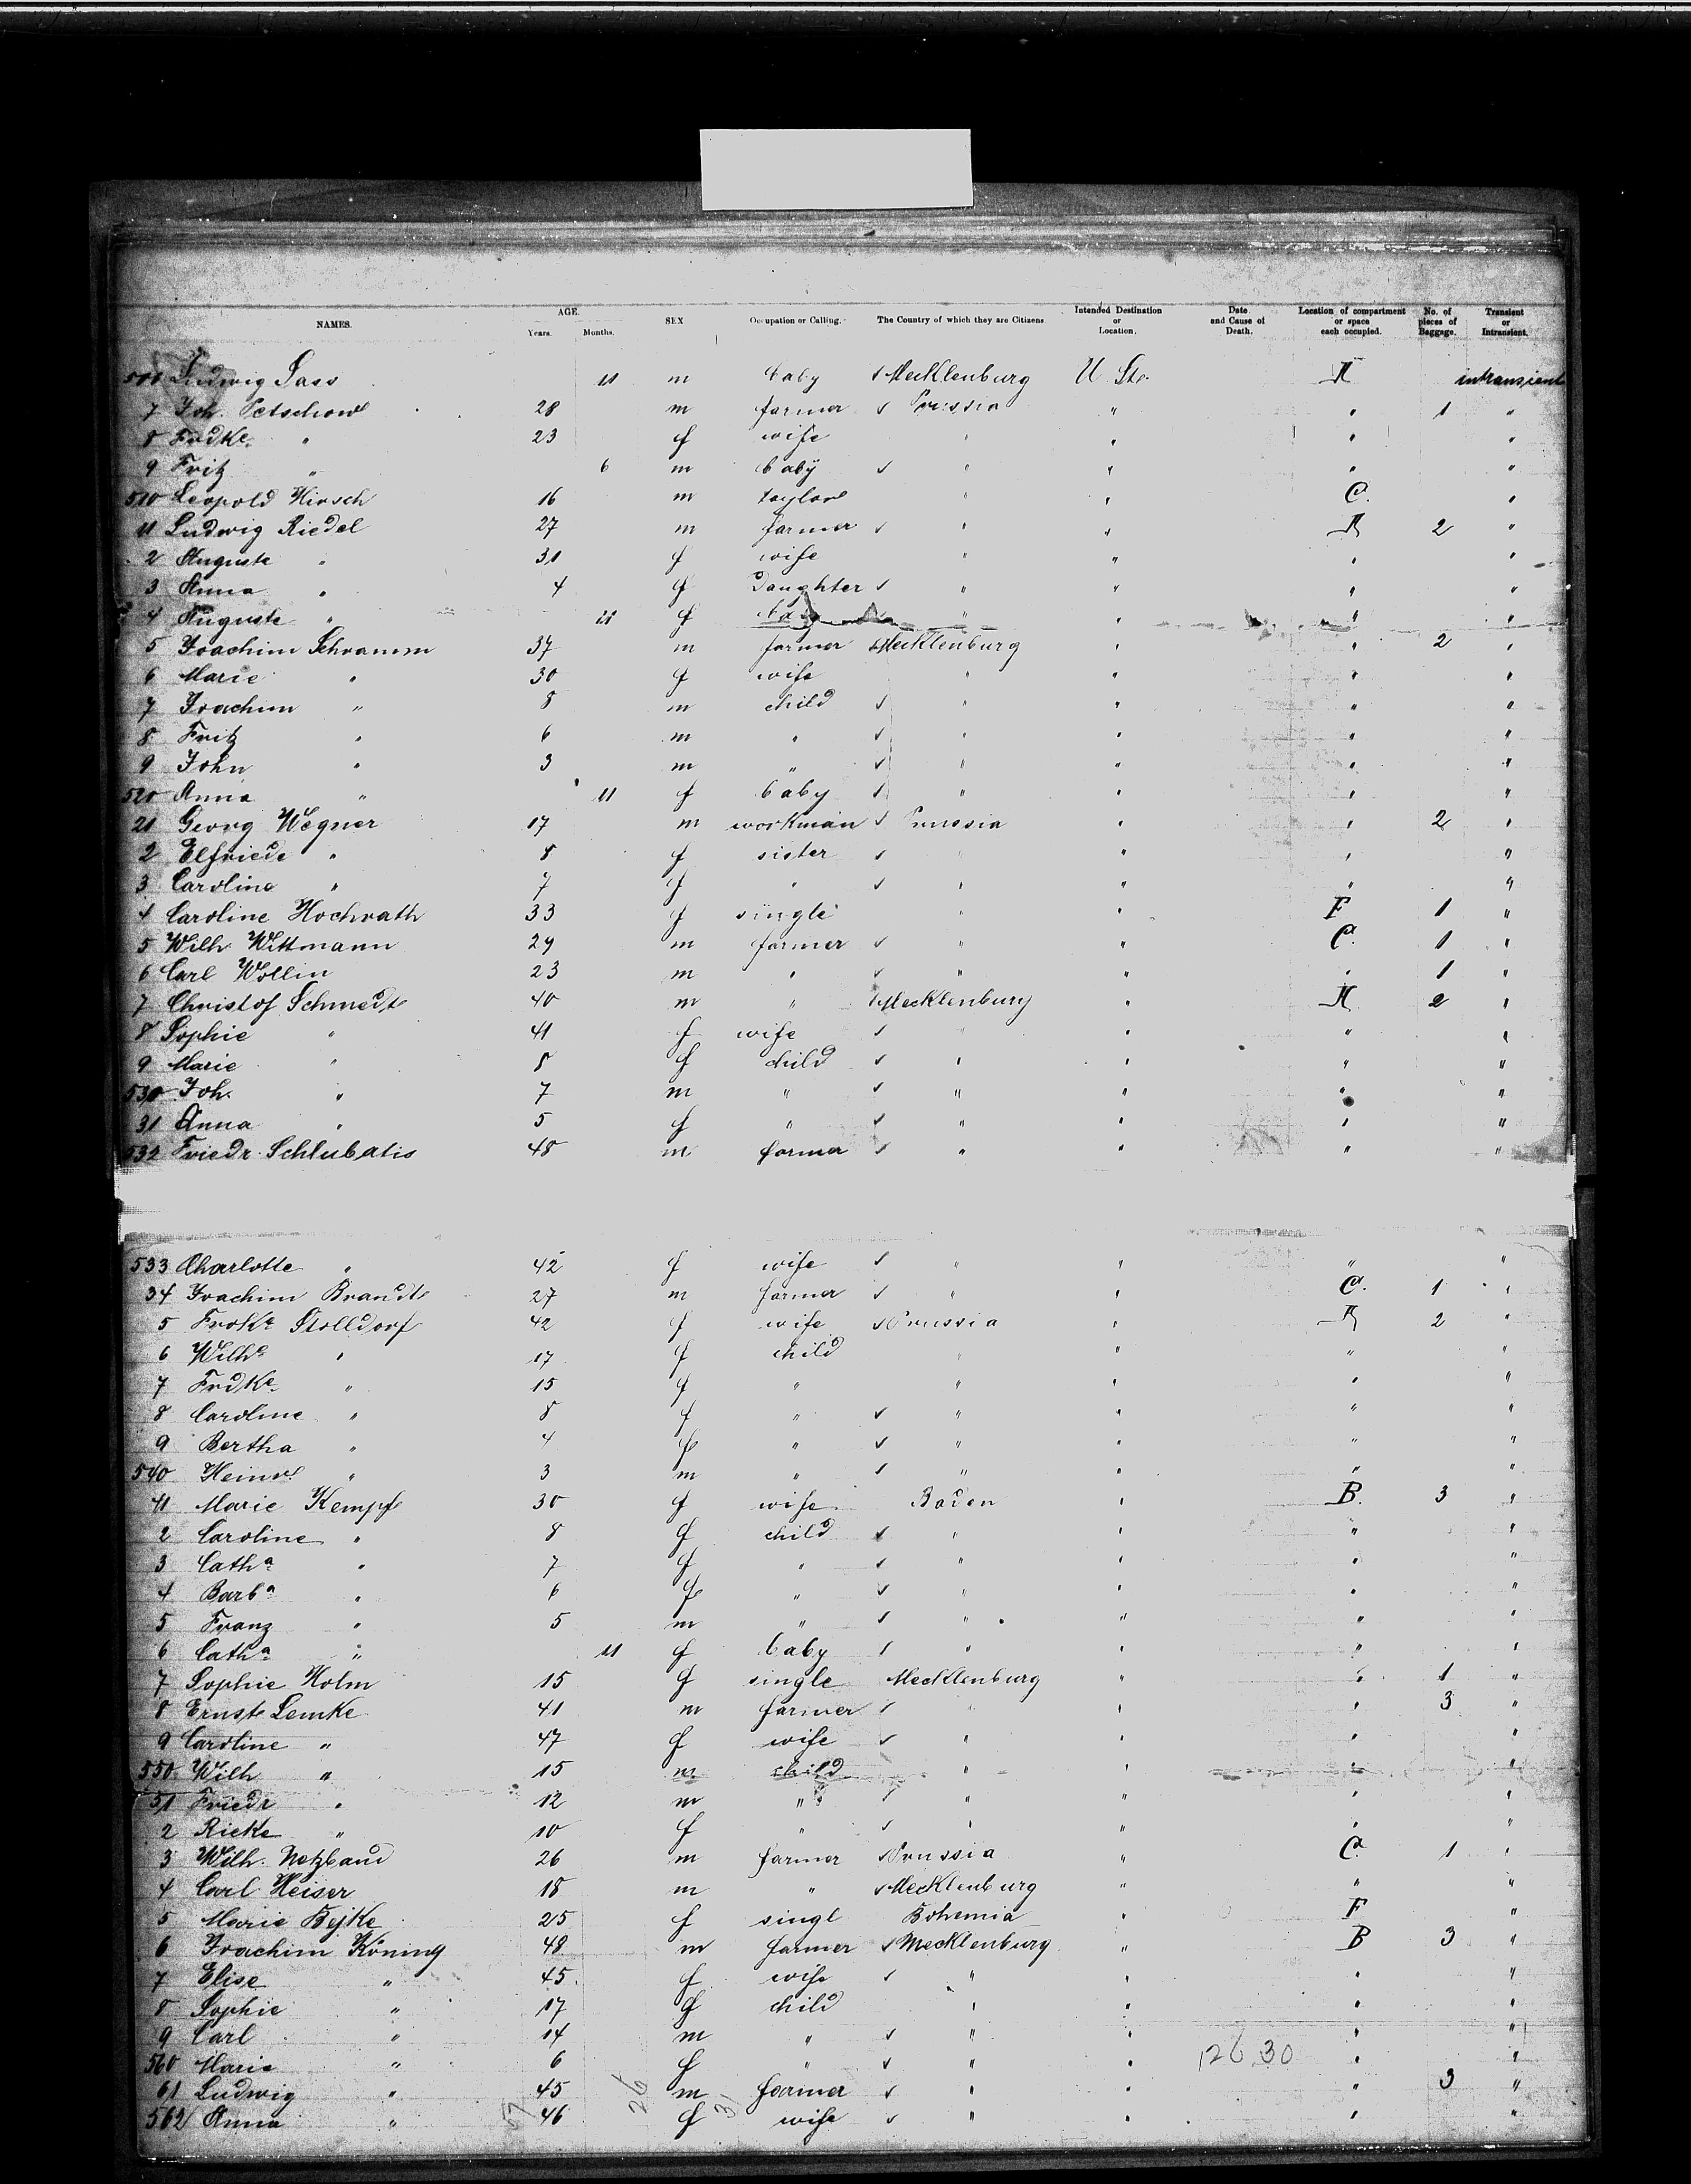 NAMES. AGE. Years. Months. SEX Occupation or Calling. The Country of which they are Citizens Intended Destination or Location. Date and Cause of Death. Location of compartment or space each occupied. No. of pieces of Baggage. Transient or Intransient.
Ludwig Sass 11 m baby ✓ Mecklenburg U. Sts. intransient
7 Joh. Petschow 28 m farmer ✓ Prussia " " 1 "
8 Fridke " 23 f wife " " " "
9 Fritz " 6 m baby ✓ " " " "
510 Leopold Hirsch 16 m taylor " " C. "
11 Ludwig Riedel 27 m farmer ✓ " " 2 "
2 Auguste " 31 f wife " " " "
3 Anna " 4 f Daughter ✓ " " " "
4 Auguste " 11 f " " " "
5 Joachim Schramm 37 m farmer ✓ Mecklenburg " " 2 "
6 Marie " 30 f wife " " " "
7 Joachim " 8 m child ✓ " " " "
8 Fritz " 6 m " ✓ " " " "
9 John " 3 m " ✓ " " " "
520 Anna " 11 f baby ✓ " " " "
21 Georg Wegner 17 m workman ✓ Prussia " " 2 "
2 Elfriede " 8 f sister ✓ " " " "
3 Caroline " 7 f " ✓ " " " "
4 Caroline Hochrath 33 f single " " F 1 "
5 Wilh. Wittmann 29 m farmer ✓ " " C. 1 "
6 Carl Wollin 23 m " ✓ " " " 1 "
7 Christof Schmedt 40 m " ✓ Mecklenburg " 2 "
8 Sophie " 41 f wife ✓ " " " "
9 Marie " 8 f child ✓ " " " "
530 Joh. " 7 m " ✓ " " " "
31 Anna " 5 f " ✓ " " " "
532 Friedr. Schlubatis 48 m farmer ✓ " " " "
533 Charlotte " 42 f wife ✓ " " " "
34 Joachim Brandt 27 m farmer ✓ " " C. 1 "
5 Stolldorf 42 f wife ✓ Prussia " 2 "
6 Wilhe " 17 f child " " " "
7 Fridke " 15 f " " " " "
8 Caroline " 8 f " ✓ " " " "
9 Bertha " 4 f " ✓ " " " "
540 Heinr. " 3 m " ✓ " " " "
41 Marie Kempf 30 f wife Baden " B. 3 "
2 Caroline " 8 f child ✓ " " " "
3 Catha " 7 f " ✓ " " " "
4 Barba " 6 f " ✓ " " " "
5 Franz " 5 m " ✓ " " " "
6 Catha " 11 f baby ✓ " " " "
7 Sophie Holm 15 f single Mecklenburg " " 1 "
8 Ernst Lemke 41 m farmer ✓ " " " 3 "
9 Caroline " 47 f wife ✓ " " " "
550 Wilh " 15 m child " " " "
51 Friedr " 12 m " ✓ " " " "
2 Rieke " 10 f " ✓ " " " "
3 Wilh. Netzband 26 m farmer ✓ Prussia " C. 1 "
4 Carl Heiser 18 m " ✓ Mecklenburg " " "
5 Marie Bejke 25 f singl Bohemia " F "
6 Joachim Köning 48 m farmer ✓ Mecklenburg " B 3 "
7 Elise " 45 f wife ✓ " " " "
8 Sophie " 17 f child " " " "
9 Carl " 14 m " ✓ " " " "
560 Marie " 6 f " ✓ " " 126 30 " "
61 Ludwig " 45 26 m farmer ✓ " " " 3 "
562 Anna " 57 46 f 31 wife ✓ " " " "